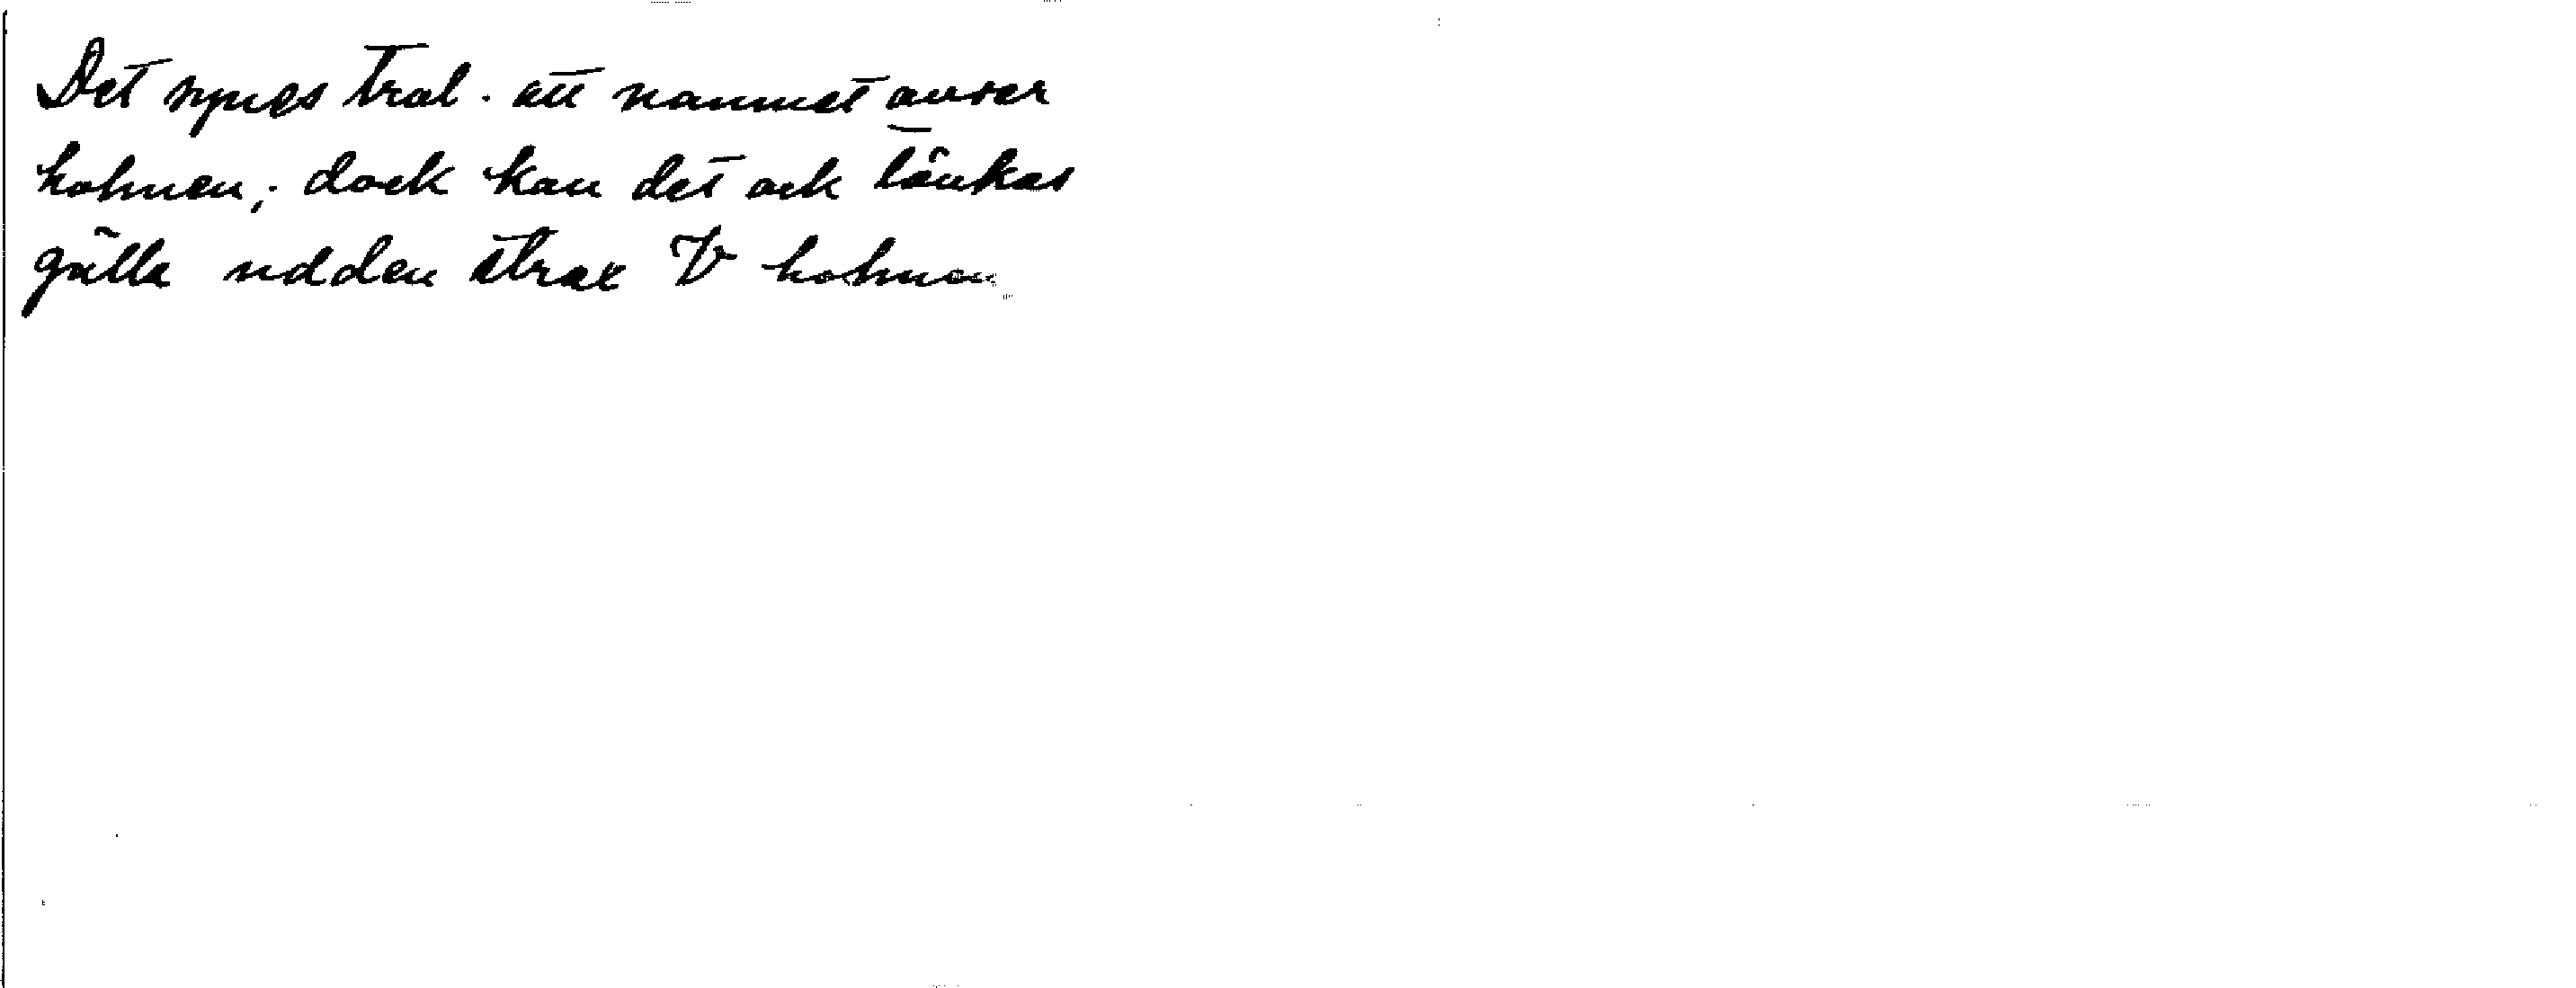 Det synes trol. att namnet avser
holmen; dock kan det ock tänkas
gälla udden strax V holmen